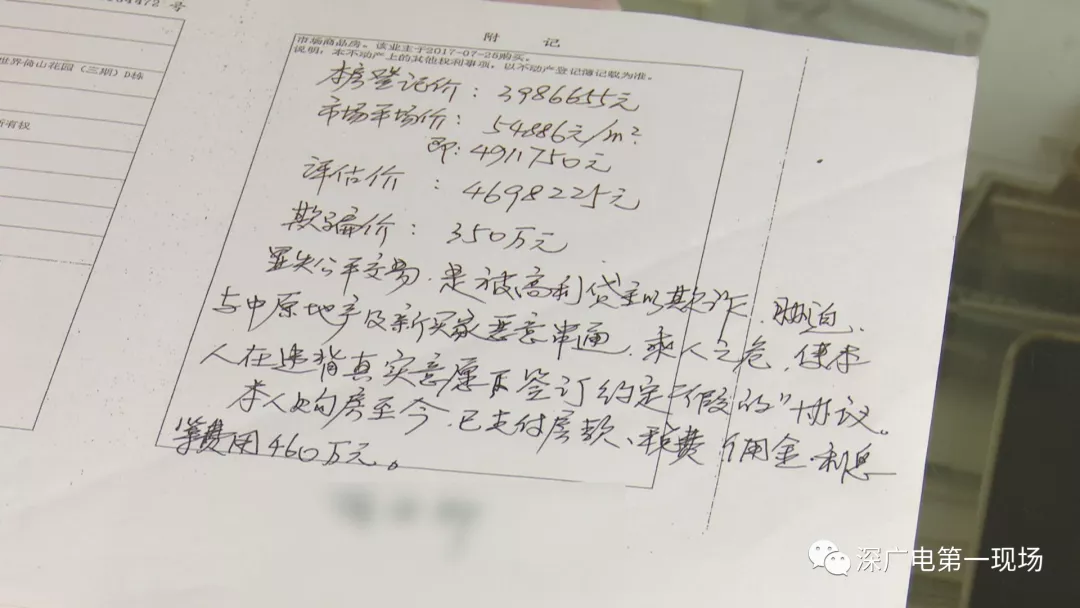 号
附 记
市场商品房。该业主于2017-07-25购买。
说明：本不动产上的其他权利事项，以不动产登记簿记载为准。
世界倚山花园（三期）D栋
所有权
本房登记价：3986655元
市场平场价：54886元/m²
即：4911750元
评估价：4698225元
欺骗价：350万元
显失公平交易，是被高利贷主以欺诈、胁迫、
与中原地产及新买家恶意串通，乘人之危，使本
人在违背真实意愿下签订约定“假的”协议。
本人购房至今，已支付房款、税费、佣金、利息
等费用460万元。
深广电第一现场